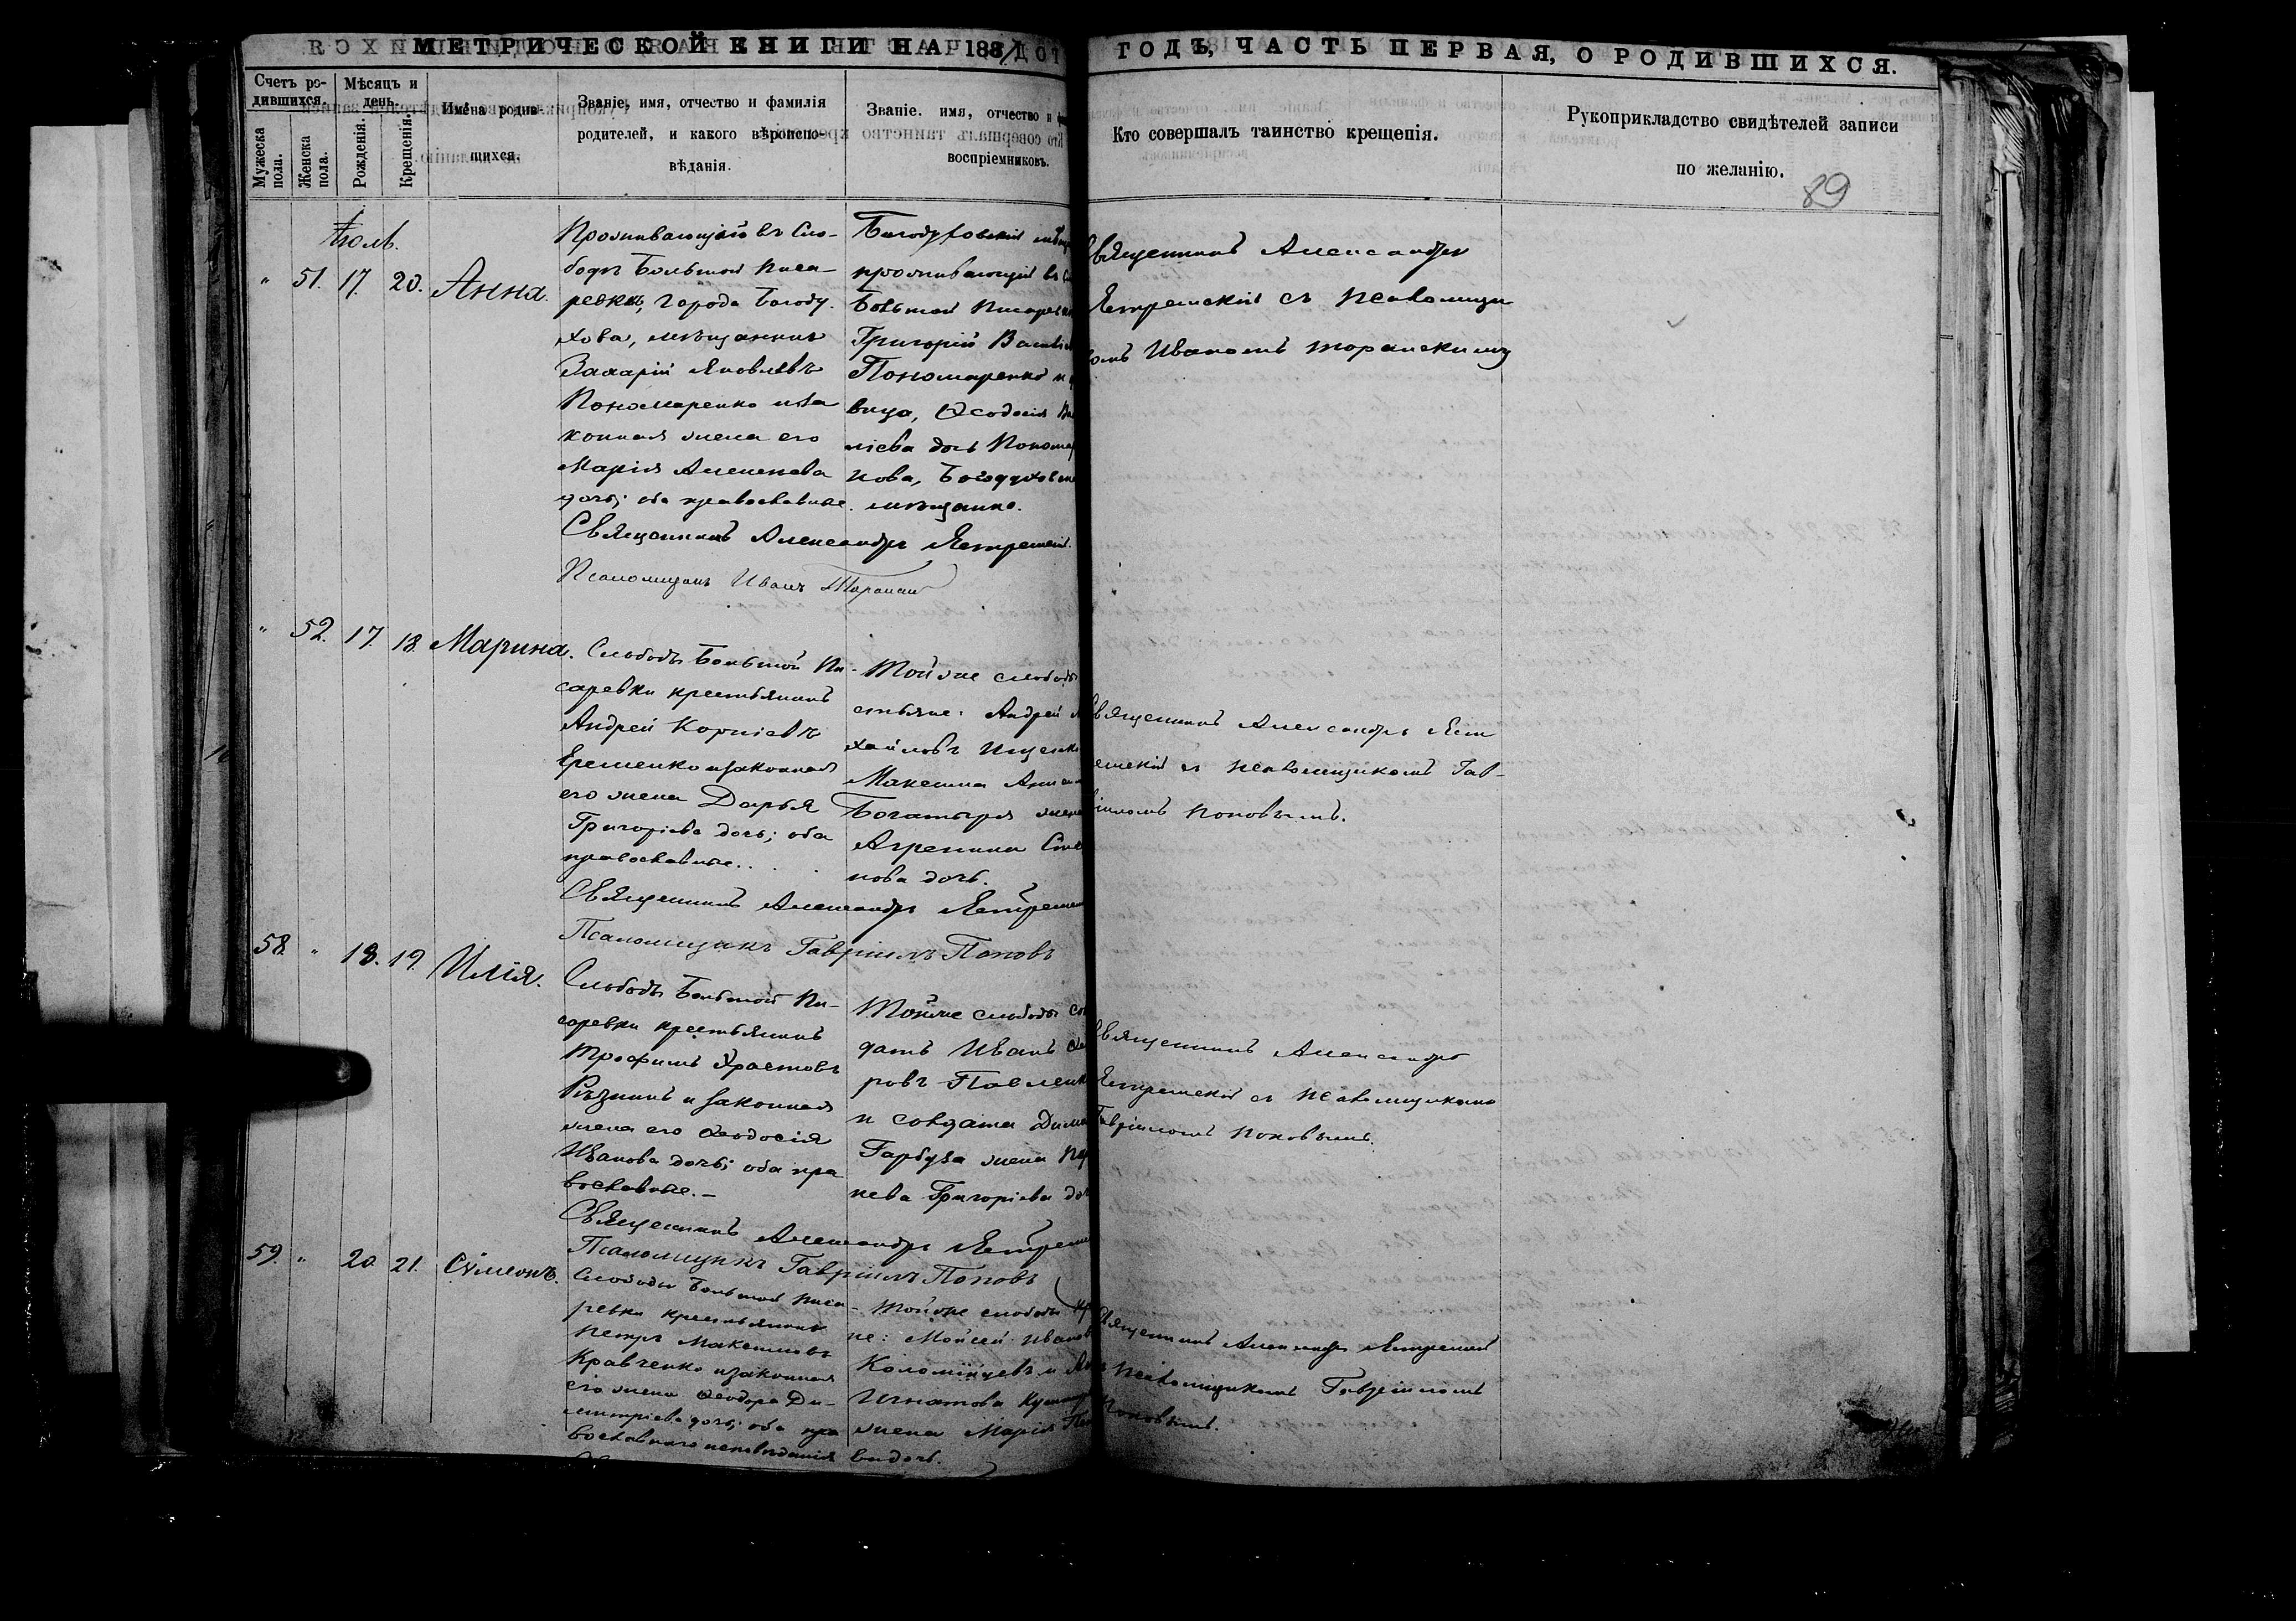 МЕТРИЧЕСКОЙ КНИГИ НА 188
ГОДЪ, ЧАСТЬ ПЕРВАЯ, О РОДИВШИХСЯ.
Счетъ ро-
дившихся.
Мужеска
пола.
Женска
пола.
Мѣсяцъ и
день.
Рожденія.
Крещенія.
Имена родив-
шихся.
Званіе, имя, отчество и фамилія
родителей, и какого вѣроиспо-
вѣданія.
Званіе, имя, отчество и
воспріемниковъ.
Кто совершалъ таинство крещенія.
Рукоприкладство свидѣтелей записи
по желанію.
89
Іюль.
" 51. 17. 20. Анна.
Проживающій въ Сло-
бодѣ Большой Писа-
ревкѣ, города Богоду-
хова, мѣщанинъ
Захарій Яковлевъ
Пономаренко и за
конная жена его
Марія Алексѣева
дочь; оба православные.
Богодуховскій
проживающій въ
Большой Писаревкѣ
Григорій
Пономаренко и
вица, Ѳеодосія
ліева дочь
нова, Богодуховская
мѣщанка.
Священникъ Александръ
Ястремскій съ Псаломщи
комъ Иваномъ Торанскимъ
Священникъ Александръ Ястремскій.
Псаломщикъ Иванъ Торанскій
" 52. 17. 18. Марина.
Слободы Большой Пи-
саревки крестьянинъ
Андрей Корніевъ
Еременко и законная
его жена Дарья
Григоріева дочь; оба
православные.
Той же слободы
стьяне: Андрей
хайловъ Ищенко
Максима
Богатыря жена
Агрепина
нова дочь.
Священникъ Александръ Яст
ремскій съ Псаломщикомъ Гав-
ріиломъ Поповымъ.
Священникъ Александръ Ястремскій
Псаломщикъ Гавріилъ Поповъ
58. " 18. 19. Илія.
Слободы Большой Пи-
саревки крестьянинъ
Трофимъ
Рѣзникъ и законная
жена его Ѳеодосія
Иванова дочь; оба пра
вославные.-
Той же слободы
датъ Иванъ
ровъ Павленко
и солдата
Гарбуза жена
нева Григоріева
Священникъ Александръ
Ястремскій съ Псаломщикомъ
Гавріиломъ Поповымъ.
Священникъ Александръ Ястремскій
Псаломщикъ Гавріилъ Поповъ
59. " 20. 21. Сѵмеонъ.
Слободы Большой Писа-
ревки крестьянинъ
Петръ Максимовъ
Кравченко и законная
его жена Ѳеодора Ди-
митріева дочь; оба пра
вославнаго исповѣданія
Той же слободы
не: Мойсей Ивановъ
Коломійцевъ и
Игнатова
жена Марія
ва дочь.
Священникъ Александръ Ястремскій
съ Псаломщикомъ Гавріиломъ
Поповымъ.